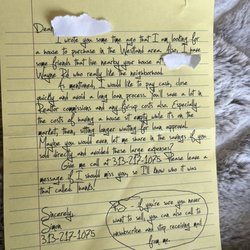 Dear
I wrote you some time ago that I am looking for
a house to purchase in the Westland area. Also, I have
some friends that live nearby your house at
Wayne Rd who really like the neighborhood.
As mentioned, I would like to pay cash, close
quickly and avoid a long loan process. You'll save a lot in
Realtor commissions and any fix-up costs also. Especially
the costs of having a house sit empty while it's on the
market, then, sitting longer waiting for loan approval.
Maybe you would even let me share in the savings if you
sold directly and avoided these large expenses?
Give me call at 313-217-1075. Please leave a
message if I should miss you so I'll know who it was
that called. Thanks.
Sincerely,
Simon
313-217-1075
P.S. - If you're sure you never
want to sell, you can also call to
unsubscribe and stop receiving mail
from me.